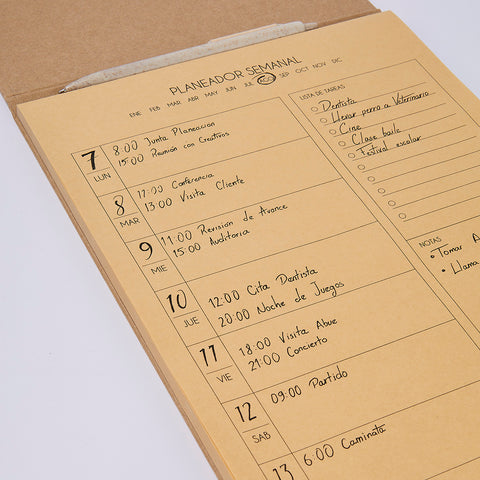 PLANEADOR SEMANAL
ENE FEB MAR ABR MAY JUN JUL AGO SEP OCT NOV DIC
7
LUN
8:00 Junta Planeacion
15:00 Reunión con Creativos
8
MAR
13:00 Visita Cliente
Conferencia
9
MIE
11:00 Revisión de Avance
15:00 Auditoria
10
JUE
12:00 Cita Dentista
20:00 Noche de Juegos
11
VIE
18:00 Visita Abue
21:00 Concierto
12
SAB
09:00 Partido
13
6:00 Caminata
LISTA DE TAREAS
Dentista
Llevar perro a Veterinario
Cine
Clase baile
Festival escolar
NOTAS
• Tomar A
• Llama